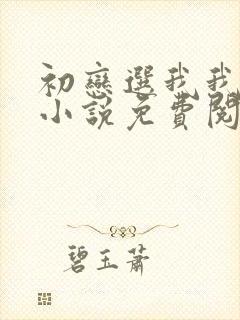 初戀選我我
小說免費閱
碧玉蕭